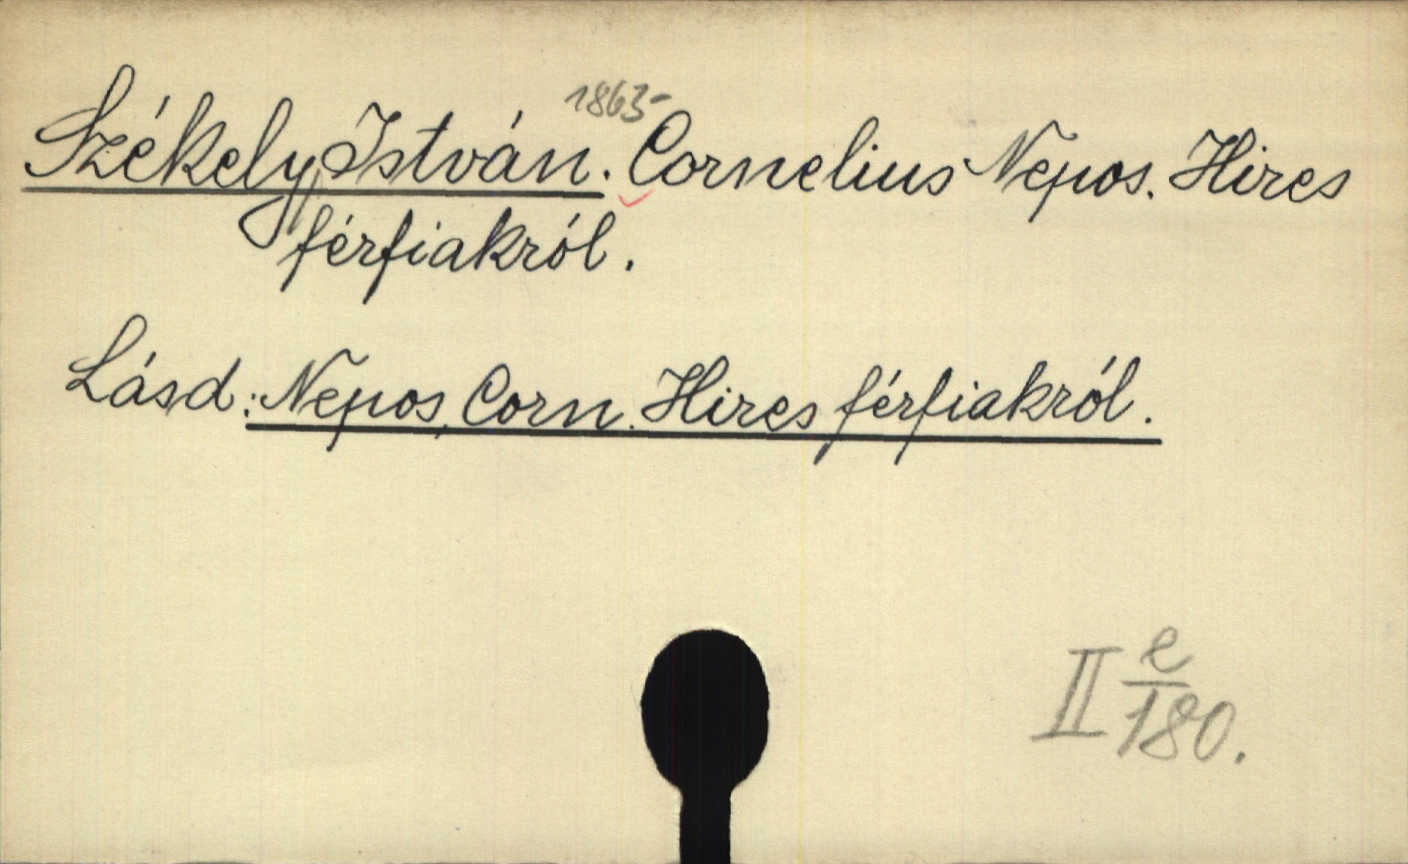 Székely István. 1863- Cornelius Nepos. Hires
férfiakról.
Lásd: Nepos, Corn. Hires férfiakról.
II e/180.